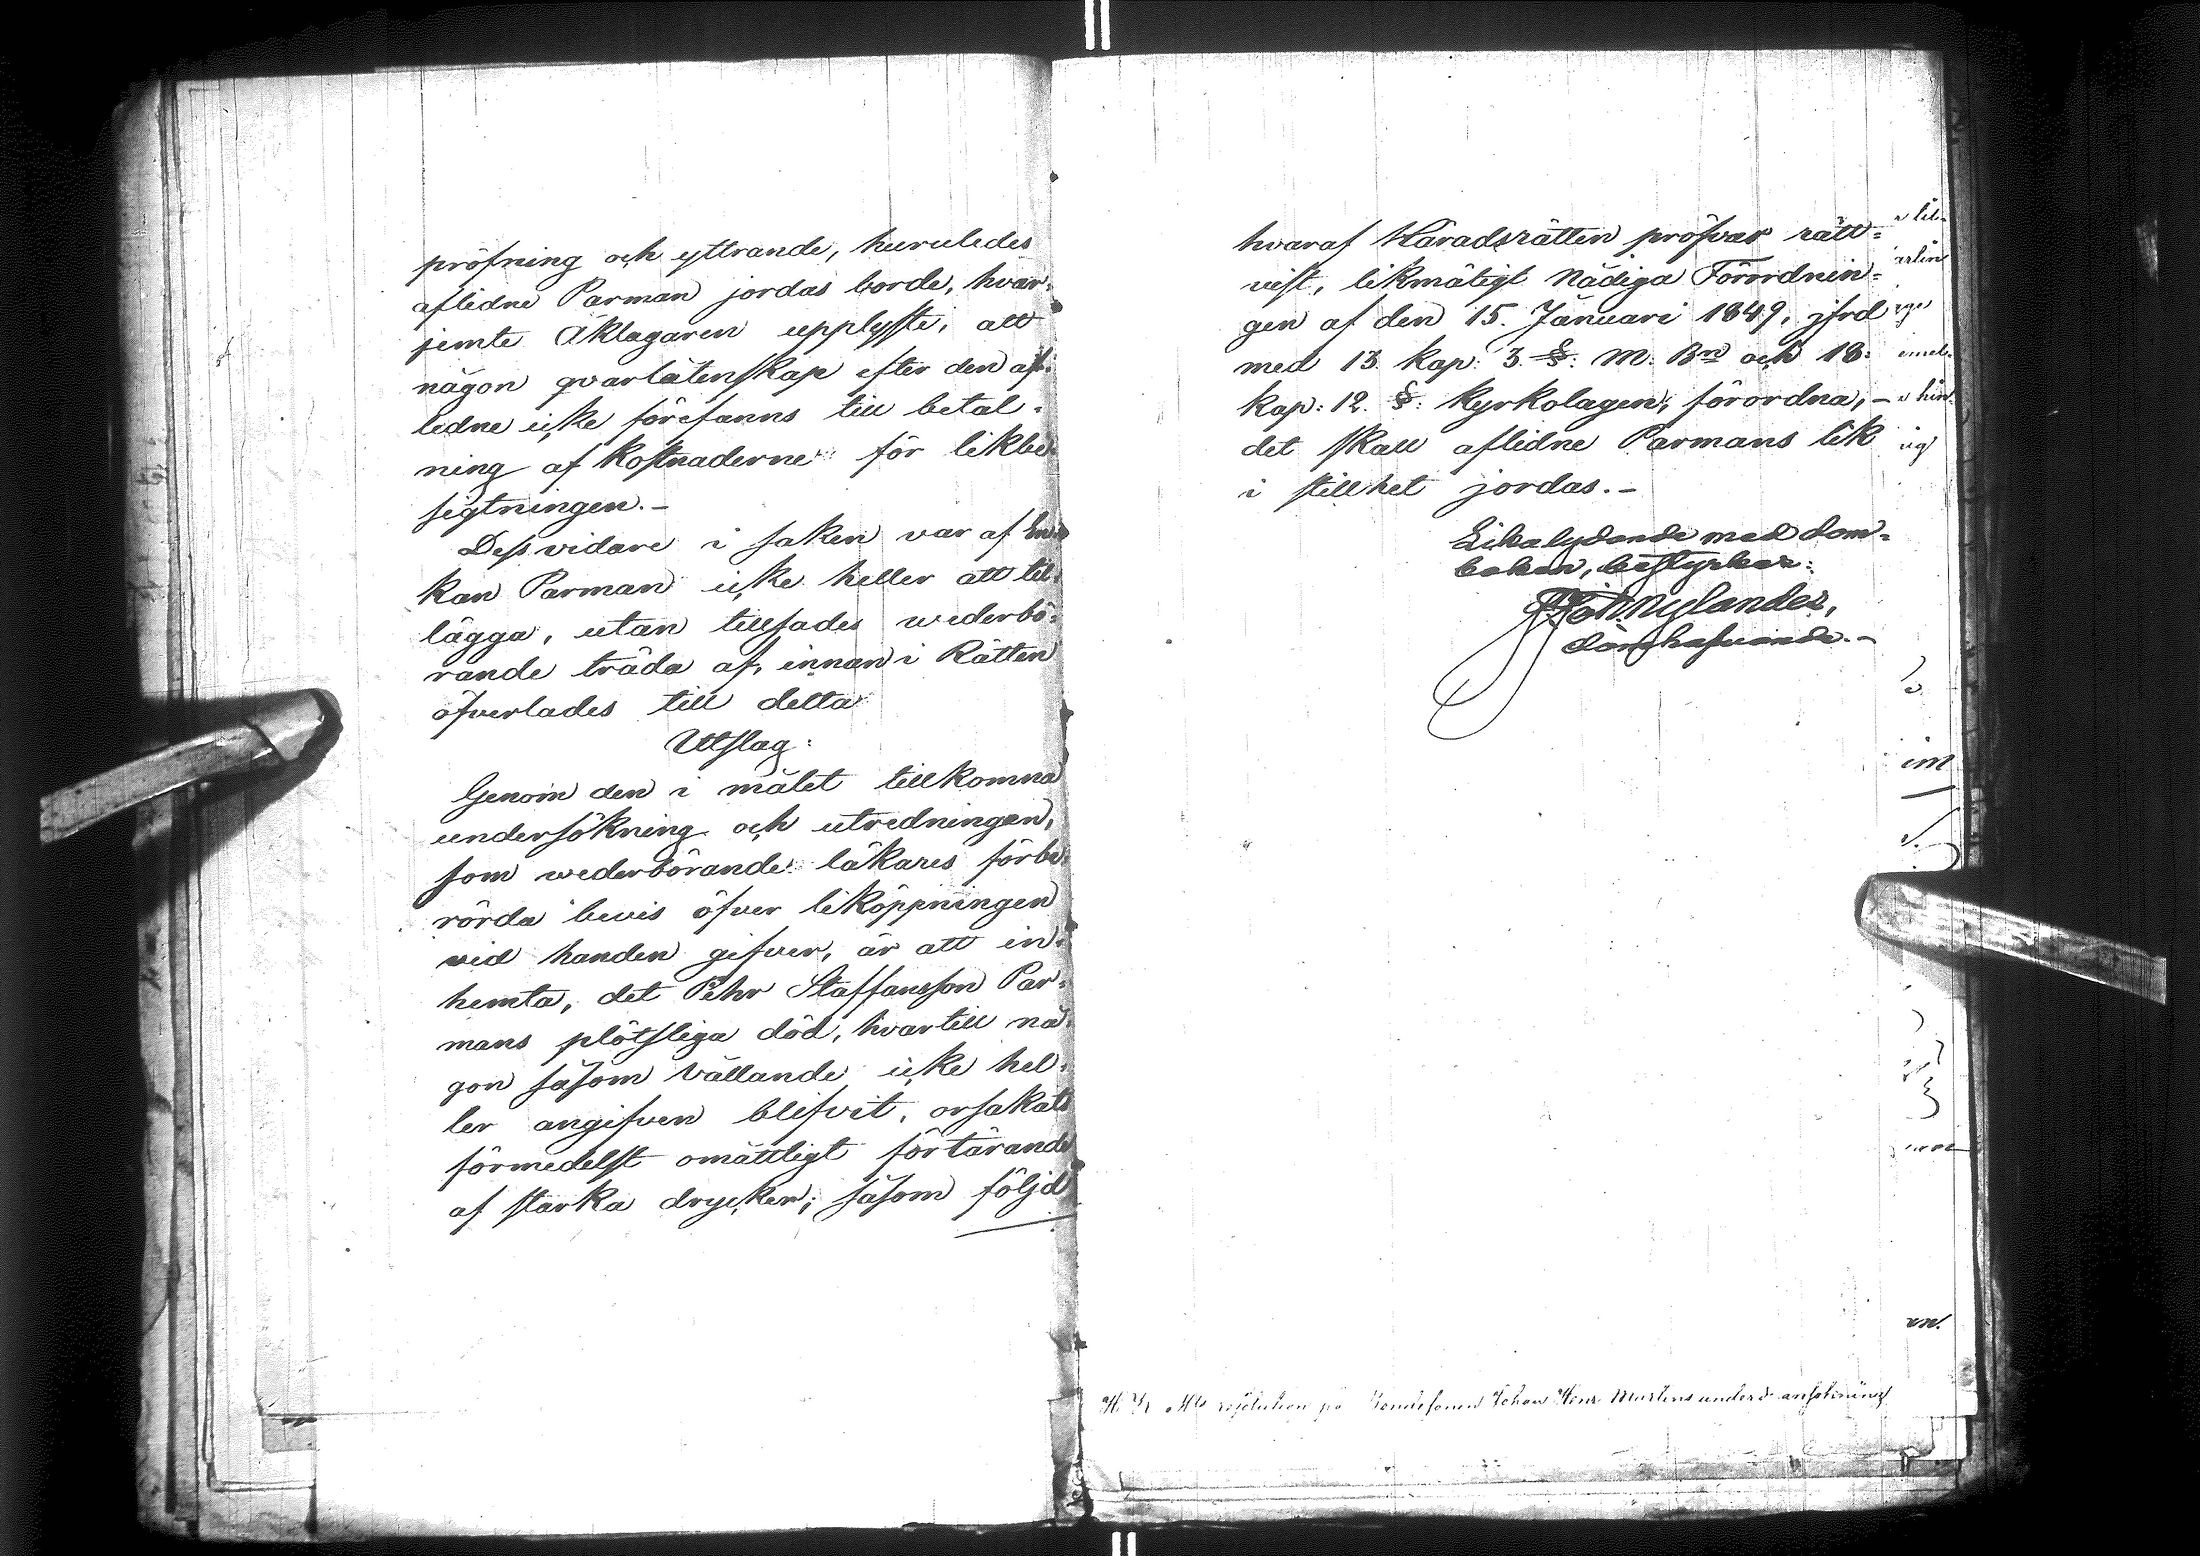 pröfning och yttrande, huruledes
aflidne Parman jordas borde, hvar-
jemte Åklagaren upplyste, att
någon qvarlåtenskap efter den af-
lidne icke förefanns till betal-
ning af kostnaderne för likbe-
sigtningen.-
Dess vidare i saken var af En-
kan Parman icke heller att til-
lägga, utan tillsades wederbö-
rande träda af, innan i Rätten
öfverlades till detta
Utslag:
Genom den i målet tillkomna
undersökning och utredningen,
som wederbörande läkares förbe-
rörda bevis öfver liköppningen
vid handen gifver, är att in-
hemta, det Pehr Staffansson Par-
mans plötsliga död, hvartill nå-
gon såsom vållande icke hel-
ler angifven blifvit, orsakats
förmedelst omåttligt förtärande
af starka drycker; såsom följd
hvaraf Häradsrätten pröfvar rätt-
vist, likmätigt Nådiga Förordnin-
gen af den 15. Januari 1849, jfrd
med 13 kap: 3 §: M: Bn och 18
kap: 12 §: Kyrkolagen, förordna, -
det skall aflidne Parmans lik
i stillhet jordas.-
Likalydande med dom-
boken, bestyrker:
Joh. Nylander,
domhafvande.-
resolution på Johan Henr Martens underd. ansökning